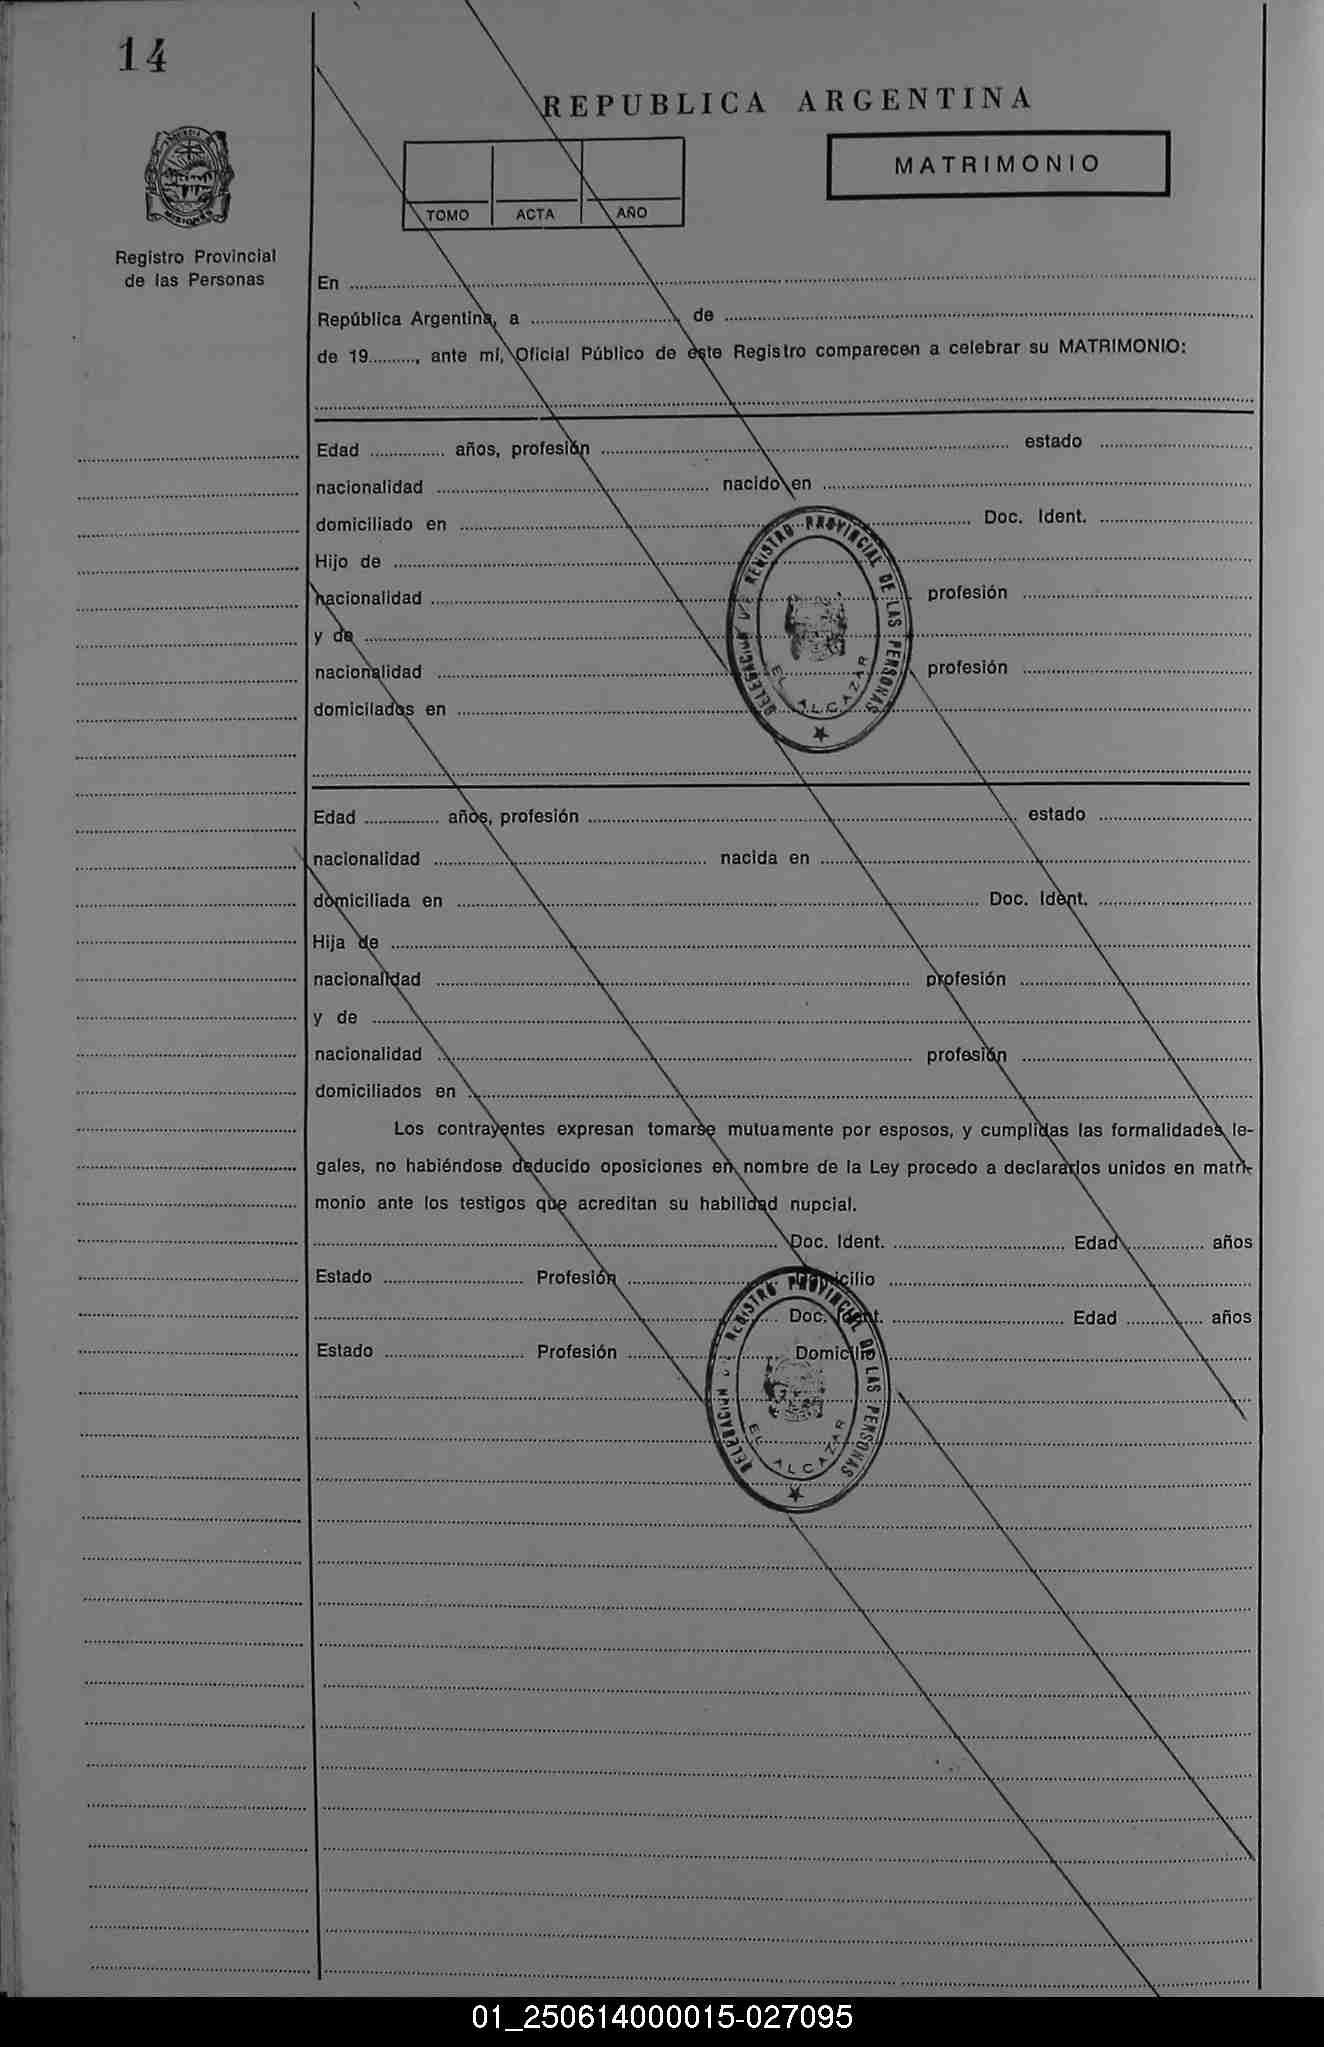 14
REPUBLICA ARGENTINA
MATRIMONIO
TOMO ACTA AÑO
MISIONES
Registro Provincial
de las Personas
En
República Argentina, a de
de 19, ante mí, Oficial Público de este Registro comparecen a celebrar su MATRIMONIO:
Edad años, profesión estado
nacionalidad nacido en
domiciliado en Doc. Ident.
Hijo de
nacionalidad profesión
y de
nacionalidad profesión
domiciliados en
DELEGACION DE REGISTRO PROVINCIAL DE LAS PERSONAS
EL ALCAZAR
Edad años, profesión estado
nacionalidad nacida en
domiciliada en Doc. Ident.
Hija de
nacionalidad profesión
y de
nacionalidad profesión
domiciliados en
Los contrayentes expresan tomarse mutuamente por esposos, y cumplidas las formalidades le-
gales, no habiéndose deducido oposiciones en nombre de la Ley procedo a declararlos unidos en matri-
monio ante los testigos que acreditan su habilidad nupcial.
Doc. Ident. Edad años
Estado Profesión Domicilio
Doc. Ident. Edad años
Estado Profesión Domicilio
DELEGACION DE REGISTRO PROVINCIAL DE LAS PERSONAS
EL ALCAZAR
01_250614000015-027095